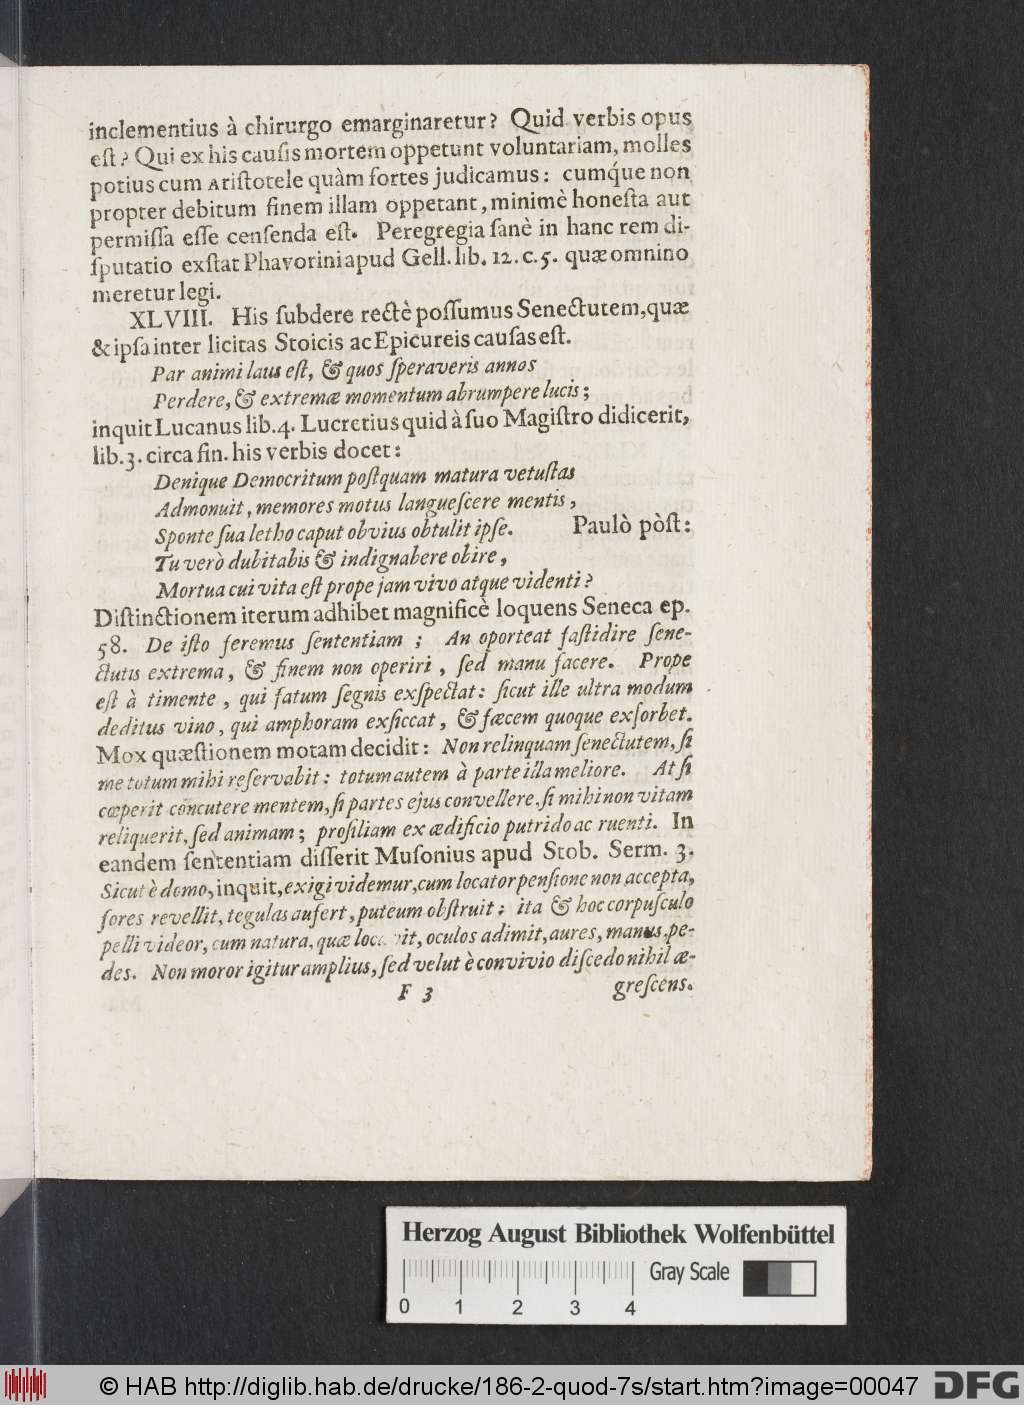 inclementius à chirurgo emarginaretur? Quid verbis opus
eſt? Qui ex his cauſis mortem oppetunt voluntariam, molles
potius cum Ariſtotele quàm fortes judicamus: cumq́ue non
propter debitum finem illam oppetant, minimè honeſta aut
permiſſa eſſe cenſenda eſt. Peregregia ſanè in hanc rem di-
ſputatio exſtat Phavorini apud Gell. lib. 12. c. 5. quæ omnino
meretur legi.
XLVIII. His ſubdere rectè poſſumus Senectutem, quæ
& ipſa inter licitas Stoicis ac Epicureis cauſas eſt.
Par animi laus eſt, & quos ſperaveris annos
Perdere, & extremæ momentum abrumpere lucis;
inquit Lucanus lib. 4. Lucretius quid à ſuo Magiſtro didicerit,
lib. 3. circa fin. his verbis docet:
Denique Democritum poſtquam matura vetuſtas
Admonuit, memores motus langueſcere mentis,
Sponte ſua letho caput obvius obtulit ipſe. Paulò pòſt:
Tu verò dubitabis & indignabere obire,
Mortua cui vita eſt prope jam vivo atque videnti?
Diſtinctionem iterum adhibet magnificè loquens Seneca ep.
58. De iſto feremus ſententiam; An oporteat faſtidire ſene-
ctutis extrema, & finem non operiri, ſed manu facere. Prope
eſt à timente, qui fatum ſegnis exſpectat: ſicut ille ultra modum
deditus vino, qui amphoram exſiccat, & fæcem quoque exſorbet.
Mox quæſtionem motam decidit: Non relinquam ſenectutem, ſi
me totum mihi reſervabit: totum autem à parte illa meliore. At ſi
cœperit concutere mentem, ſi partes ejus convellere, ſi mihi non vitam
reliquerit, ſed animam; proſiliam ex ædificio putrido ac ruenti. In
eandem ſententiam diſſerit Muſonius apud Stob. Serm. 3.
Sicut è domo, inquit, exigi videmur, cum locator penſione non accepta,
fores revellit, tegulas aufert, puteum obſtruit: ita & hoc corpuſculo
pelli videor, cum natura, quæ locavit, oculos adimit, aures, manus, pe-
des. Non moror igitur amplius, ſed velut è convivio diſcedo nihil æ-
F 3 greſcens.
Herzog August Bibliothek Wolfenbüttel
Gray Scale
0 1 2 3 4
© HAB http://diglib.hab.de/drucke/186-2-quod-7s/start.htm?image=00047 DFG